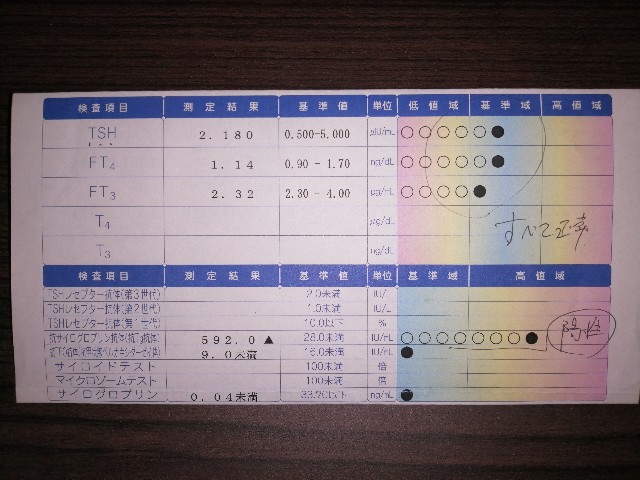 検査項目 測定結果 基準値 単位 低値域 基準域 高値域
TSH 2.180 0.500-5.000 μIU/mL
FT4 1.14 0.90 - 1.70 ng/dL
FT3 2.32 2.30 - 4.00
T4 μg/dL
T3 ng/dL
すべて正常
検査項目 測定結果 基準値 単位 基準域 高値域
TSHレセプター抗体(第3世代) 2.0未満 IU/L
TSHレセプター抗体(第2世代) 1.0未満 IU/L
TSHレセプター抗体(第1世代) 10.0以下 %
抗サイログロブリン抗体 592.0▲ 28.0未満 IU/mL
9.0未満 16.0未満 IU/mL
陽性
サイロイドテスト 100未満 倍
マイクロゾームテスト 100未満 倍
サイログロブリン 0.04未満 33.70以下 ng/mL